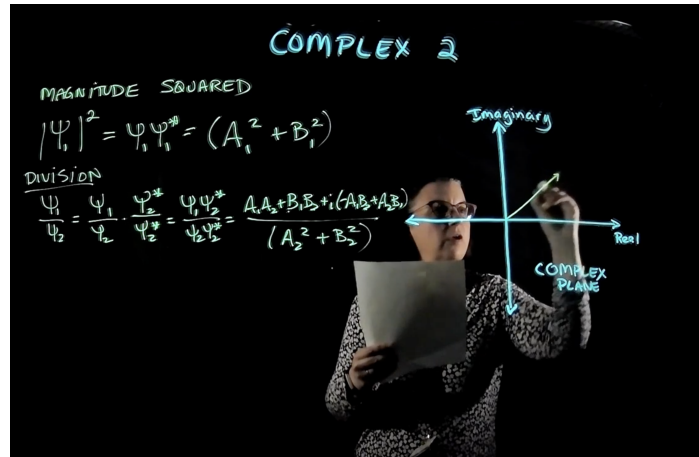 COMPLEX 2
MAGNITUDE SQUARED
|Ψ₁|² = Ψ₁Ψ₁* = (A₁² + B₁²)
DIVISION
Ψ₁/Ψ₂ = Ψ₁/Ψ₂ · Ψ₂*/Ψ₂* = Ψ₁Ψ₂*/Ψ₂Ψ₂* = A₁A₂+B₁B₂+i(-A₁B₂+A₂B₁)/(A₂² + B₂²)
Imaginary
Real
COMPLEX
PLANE